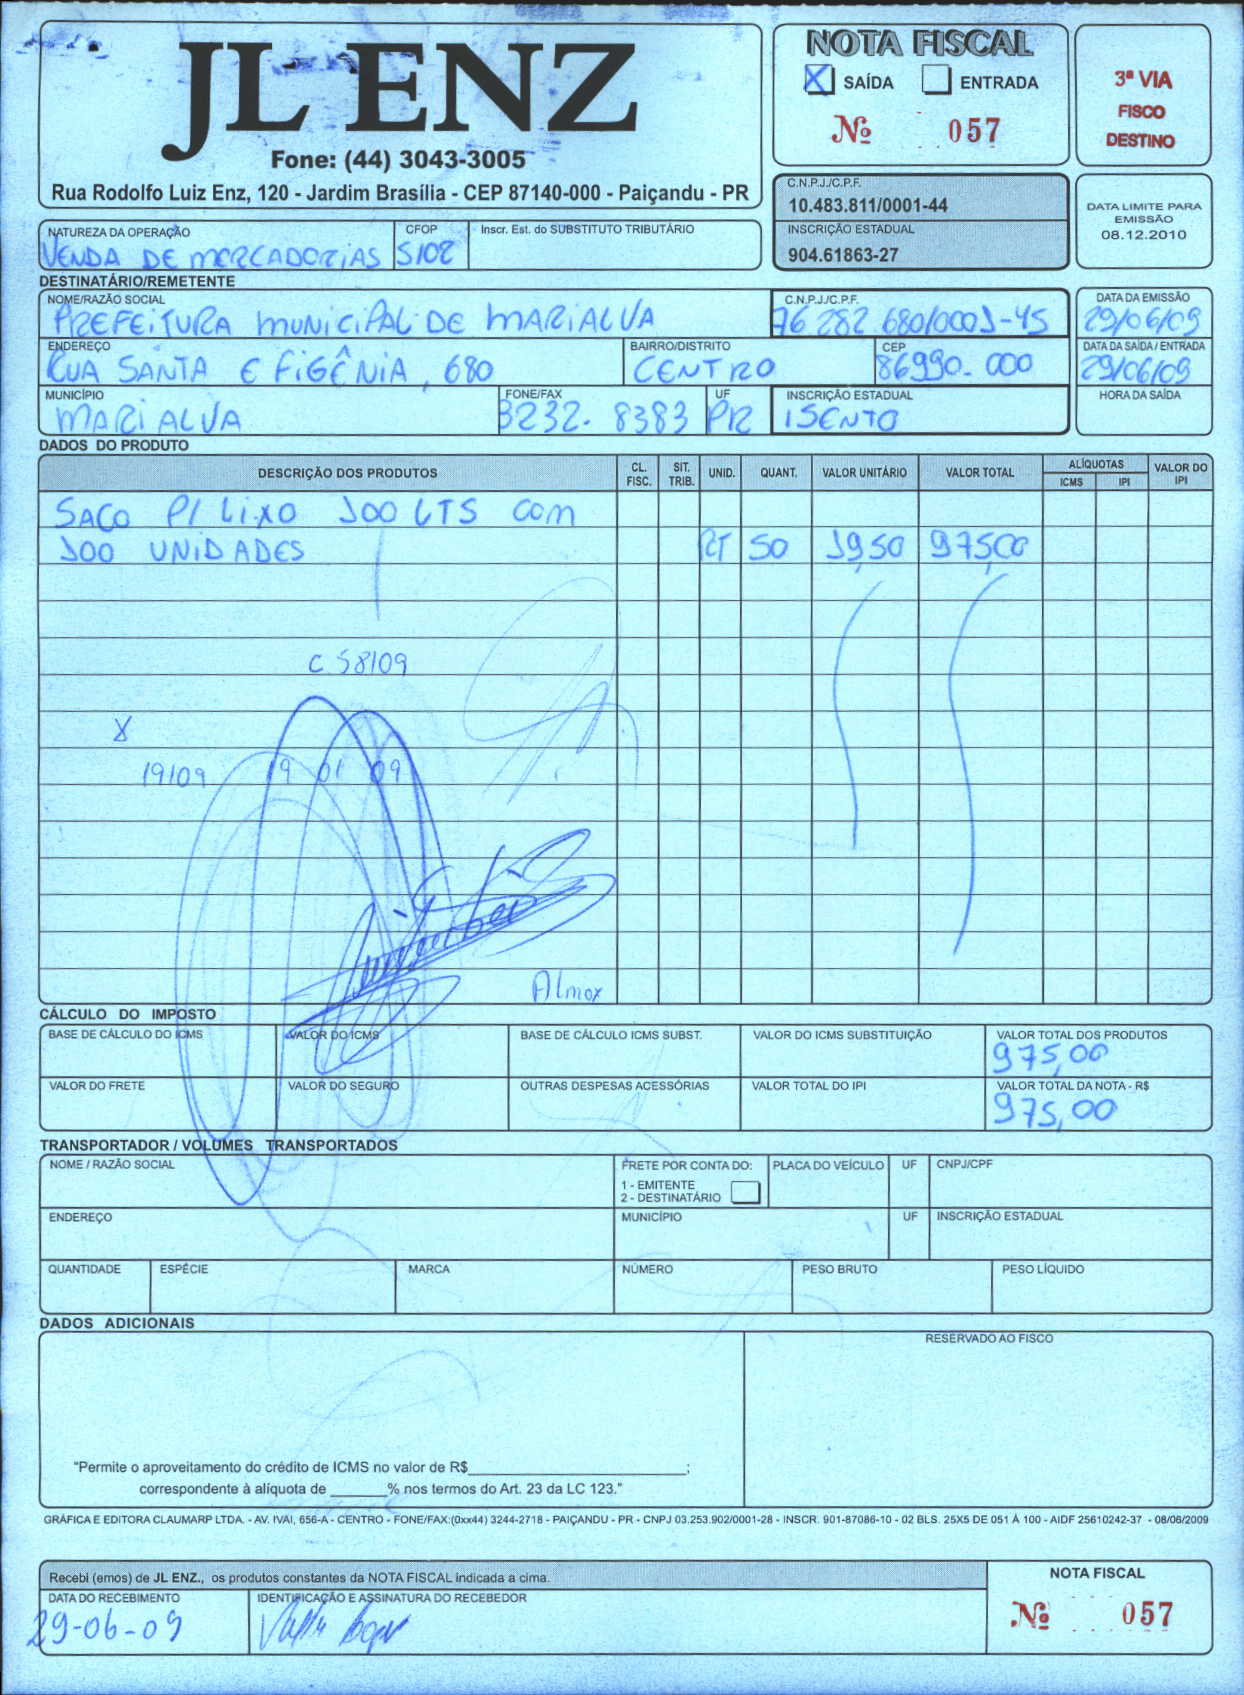 JL ENZ
Fone: (44) 3043-3005
Rua Rodolfo Luiz Enz, 120 - Jardim Brasília - CEP 87140-000 - Paiçandu - PR
NOTA FISCAL
X SAÍDA ENTRADA
Nº 057
3ª VIA
FISCO
DESTINO
C.N.P.J./C.P.F.
10.483.811/0001-44
INSCRIÇÃO ESTADUAL
904.61863-27
DATA LIMITE PARA
EMISSÃO
08.12.2010
NATUREZA DA OPERAÇÃO CFOP Inscr. Est. do SUBSTITUTO TRIBUTÁRIO
VENDA DE MERCADORIAS 5102
DESTINATÁRIO/REMETENTE
NOME/RAZÃO SOCIAL C.N.P.J./C.P.F. DATA DA EMISSÃO
PREFEITURA MUNICIPAL DE MARIALVA 76 282 680/0001-45 29/06/09
ENDEREÇO BAIRRO/DISTRITO CEP DATA DA SAÍDA / ENTRADA
RUA SANTA EFIGÊNIA, 680 CENTRO 86990-000 29/06/09
MUNICÍPIO FONE/FAX UF INSCRIÇÃO ESTADUAL HORA DA SAÍDA
MARIALVA 3232-8383 PR ISENTO
DADOS DO PRODUTO
DESCRIÇÃO DOS PRODUTOS CL. FISC. SIT. TRIB. UNID. QUANT. VALOR UNITÁRIO VALOR TOTAL ALÍQUOTAS ICMS IPI VALOR DO IPI
SACO P/ LIXO 100 LTS COM
100 UNIDADES 50 19,50 975,00
C 58/09
19/09 19 01 09
Almox
CÁLCULO DO IMPOSTO
BASE DE CÁLCULO DO ICMS VALOR DO ICMS BASE DE CÁLCULO ICMS SUBST. VALOR DO ICMS SUBSTITUIÇÃO VALOR TOTAL DOS PRODUTOS
975,00
VALOR DO FRETE VALOR DO SEGURO OUTRAS DESPESAS ACESSÓRIAS VALOR TOTAL DO IPI VALOR TOTAL DA NOTA - R$
975,00
TRANSPORTADOR / VOLUMES TRANSPORTADOS
NOME / RAZÃO SOCIAL FRETE POR CONTA DO: PLACA DO VEÍCULO UF CNPJ/CPF
1 - EMITENTE
2 - DESTINATÁRIO
ENDEREÇO MUNICÍPIO UF INSCRIÇÃO ESTADUAL
QUANTIDADE ESPÉCIE MARCA NÚMERO PESO BRUTO PESO LÍQUIDO
DADOS ADICIONAIS
RESERVADO AO FISCO
"Permite o aproveitamento do crédito de ICMS no valor de R$____________________;
correspondente à alíquota de _______% nos termos do Art. 23 da LC 123."
GRÁFICA E EDITORA CLAUMARP LTDA. - AV. IVAI, 656-A - CENTRO - FONE/FAX:(0xx44) 3244-2718 - PAIÇANDU - PR - CNPJ 03.253.902/0001-28 - INSCR. 901-87086-10 - 02 BLS. 25X5 DE 051 À 100 - AIDF 25610242-37 - 08/06/2009
Recebi (emos) de JL ENZ., os produtos constantes da NOTA FISCAL indicada a cima.
DATA DO RECEBIMENTO IDENTIFICAÇÃO E ASSINATURA DO RECEBEDOR
29-06-09
NOTA FISCAL
Nº 057